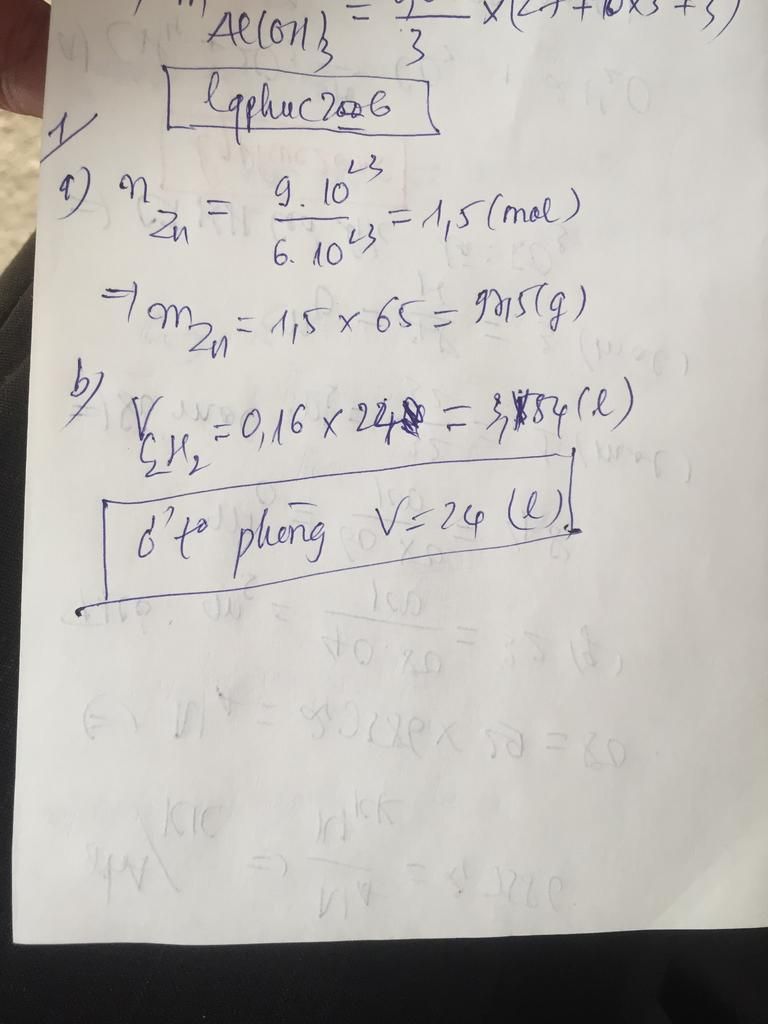 Al(OH)3 = 3 x (27 + 16x3 + 3)
lqphuc2006
1/
a) n Zn = 9.10^23 / 6.10^23 = 1,5 (mol)
=> m Zn = 1,5 x 65 = 97,5 (g)
b) V C2H2 = 0,16 x 24 = 3,84 (l)
ở t° phòng V = 24 (l)